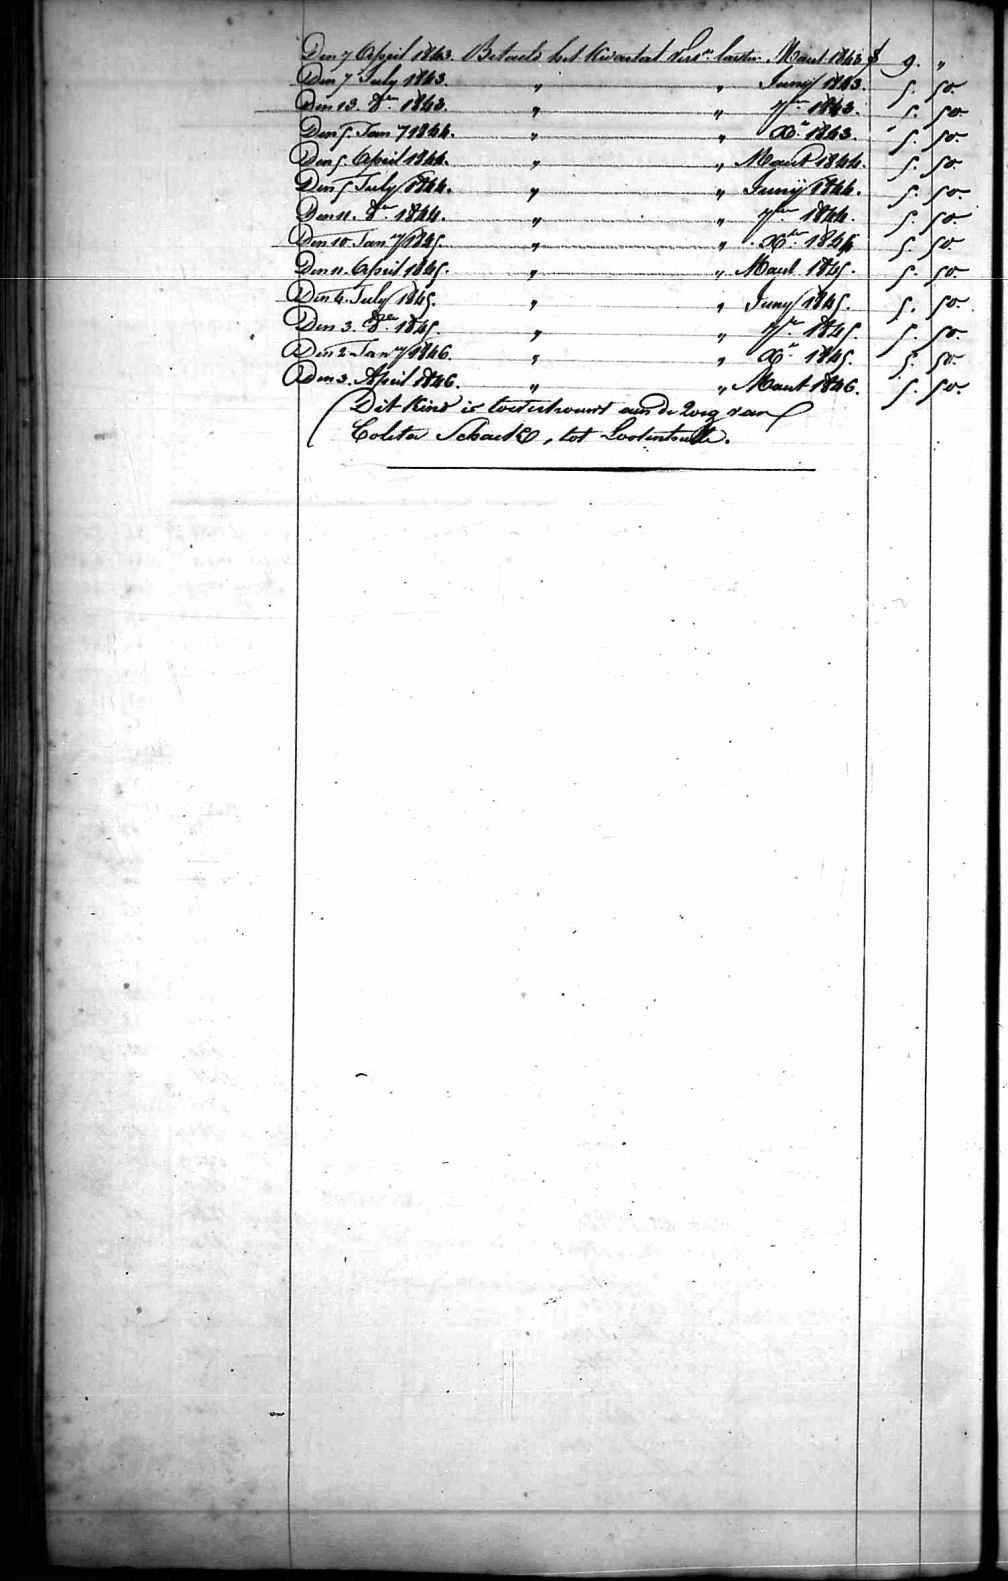 Den 7 April 1843. Betaeld het Kwartael vers.en laetsten Maart 1843 f 9. "
Den 7 July 1843. " " Juny 1843. 5. 50
Den 13. 8er 1843. " " 7er 1843. 5. 50
Den 5. Jany 1844. " " Xr 1843. 5. 50.
Den 5. April 1844. " " Maart 1844. 5. 50
Den 5 July 1844. " " Juny 1844. 5. 50.
Den 11. 8er 1844. " " 7er 1844. 5. 50
Den 10 Jany 1845. " " Xer 1844 5. 50.
Den 11. April 1845. " " Maart 1845. 5. 50.
Den 4. July 1845. " " Juny 1845. 5. 50.
Den 3. 8er 1845. " " 7er 1845. 5. 50.
Den 2 Jany 1846. " " Xr 1845. 5. 50.
Den 3. April 1846. " " Maart 1846. 5. 50.
Dit Kind is toevertrouwt aan de Zorg van
Coleta, tot Lootenhulle.